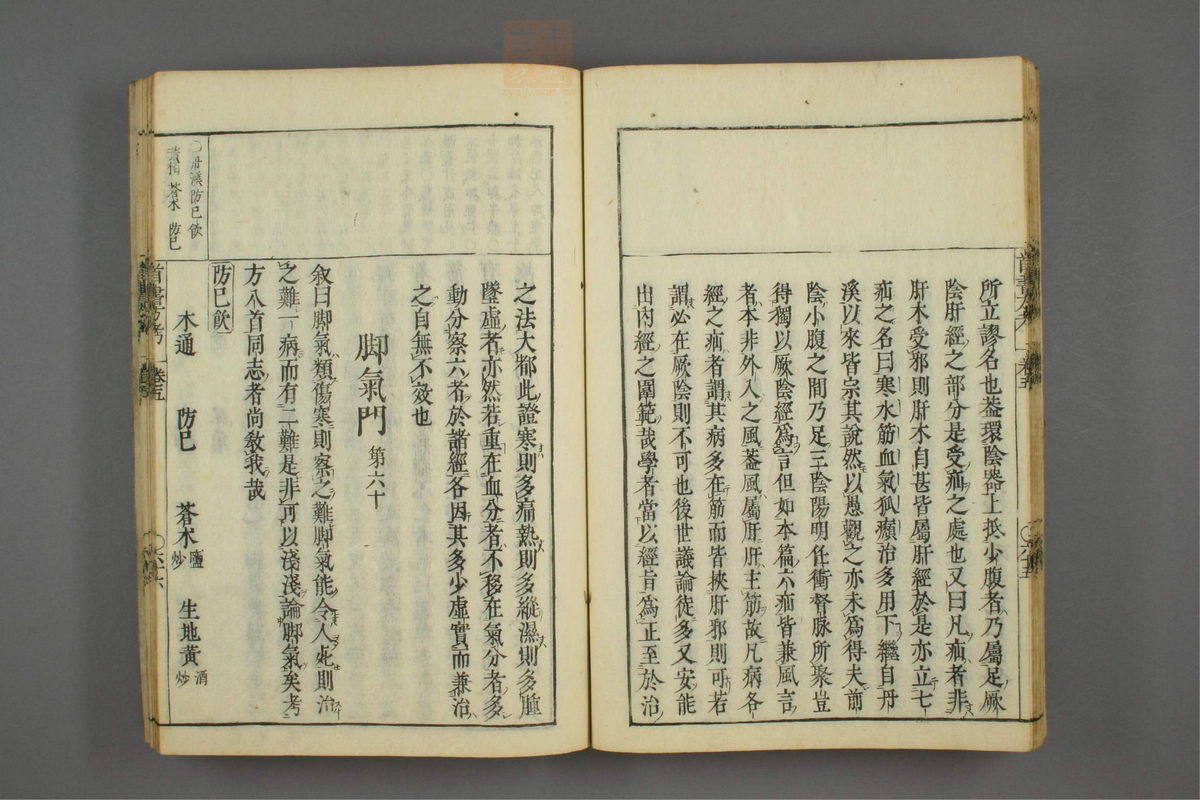 所立謬名也蓋環陰器上抵少腹者乃屬足厥
陰肝經之部分是受疝之處也又曰凡疝者非
肝木受邪則肝木自甚皆屬肝經於是亦立七
疝之名曰寒水筋血氣狐癩治多用下繼自丹
溪以來皆宗其說然以愚觀之亦未爲得夫前
陰小腹之間乃足三陰陽明任衝督脉所聚豈
得獨以厥陰經爲言但如本篇六疝皆兼風言
者本非外入之風蓋風屬肝肝主筋故凡病各
經之疝者謂其病多在筋而皆挾肝邪則可若
謂必在厥陰則不可也後世議論徒多又安能
出內經之圍範哉學者當以經旨爲正至於治
卷五
六十五
之法大都此證寒則多痛熱則多縱濕則多腫
墜虛者亦然若重在血分者不移在氣分者多
動分察六者於諸經各因其多少虛實而兼治
之自無不效也
脚氣門 第六十
叙曰脚氣類傷寒則察之難脚氣能令人死則治
之難一病而有二難是非可以淺淺論脚氣矣考
方八首同志者尚教我哉
防巳飲
木通 防巳 蒼术鹽炒 生地黃酒炒
〇丹溪防巳飲
黃栢 蒼术 防巳
首書方考 卷五
〇六十六